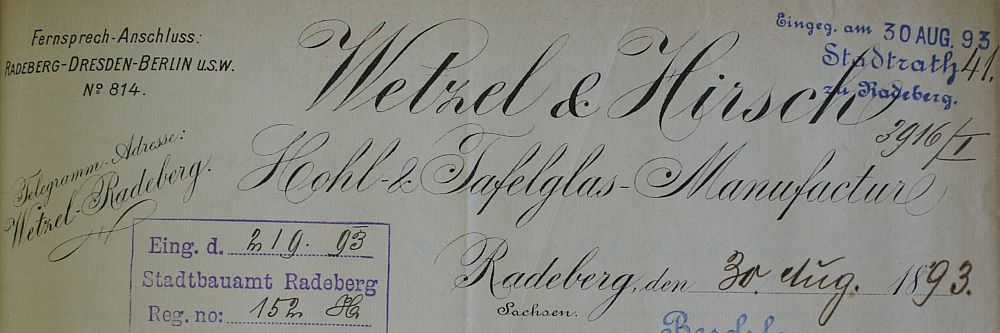 Fernsprech-Anschluss:
RADEBERG-DRESDEN-BERLIN U.S.W.
No 814.
Telegramm-Adresse:
Wetzel-Radeberg.
Wetzel & Hirsch
Hohl- & Tafelglas-Manufactur
Eingeg. am 30 AUG. 93
Stadtrath 41.
zu Radeberg.
3916/I
Eing. d. 2/9. 93
Stadtbauamt Radeberg
Reg. no: 152
Radeberg, den 30. Aug. 1893.
Sachsen.